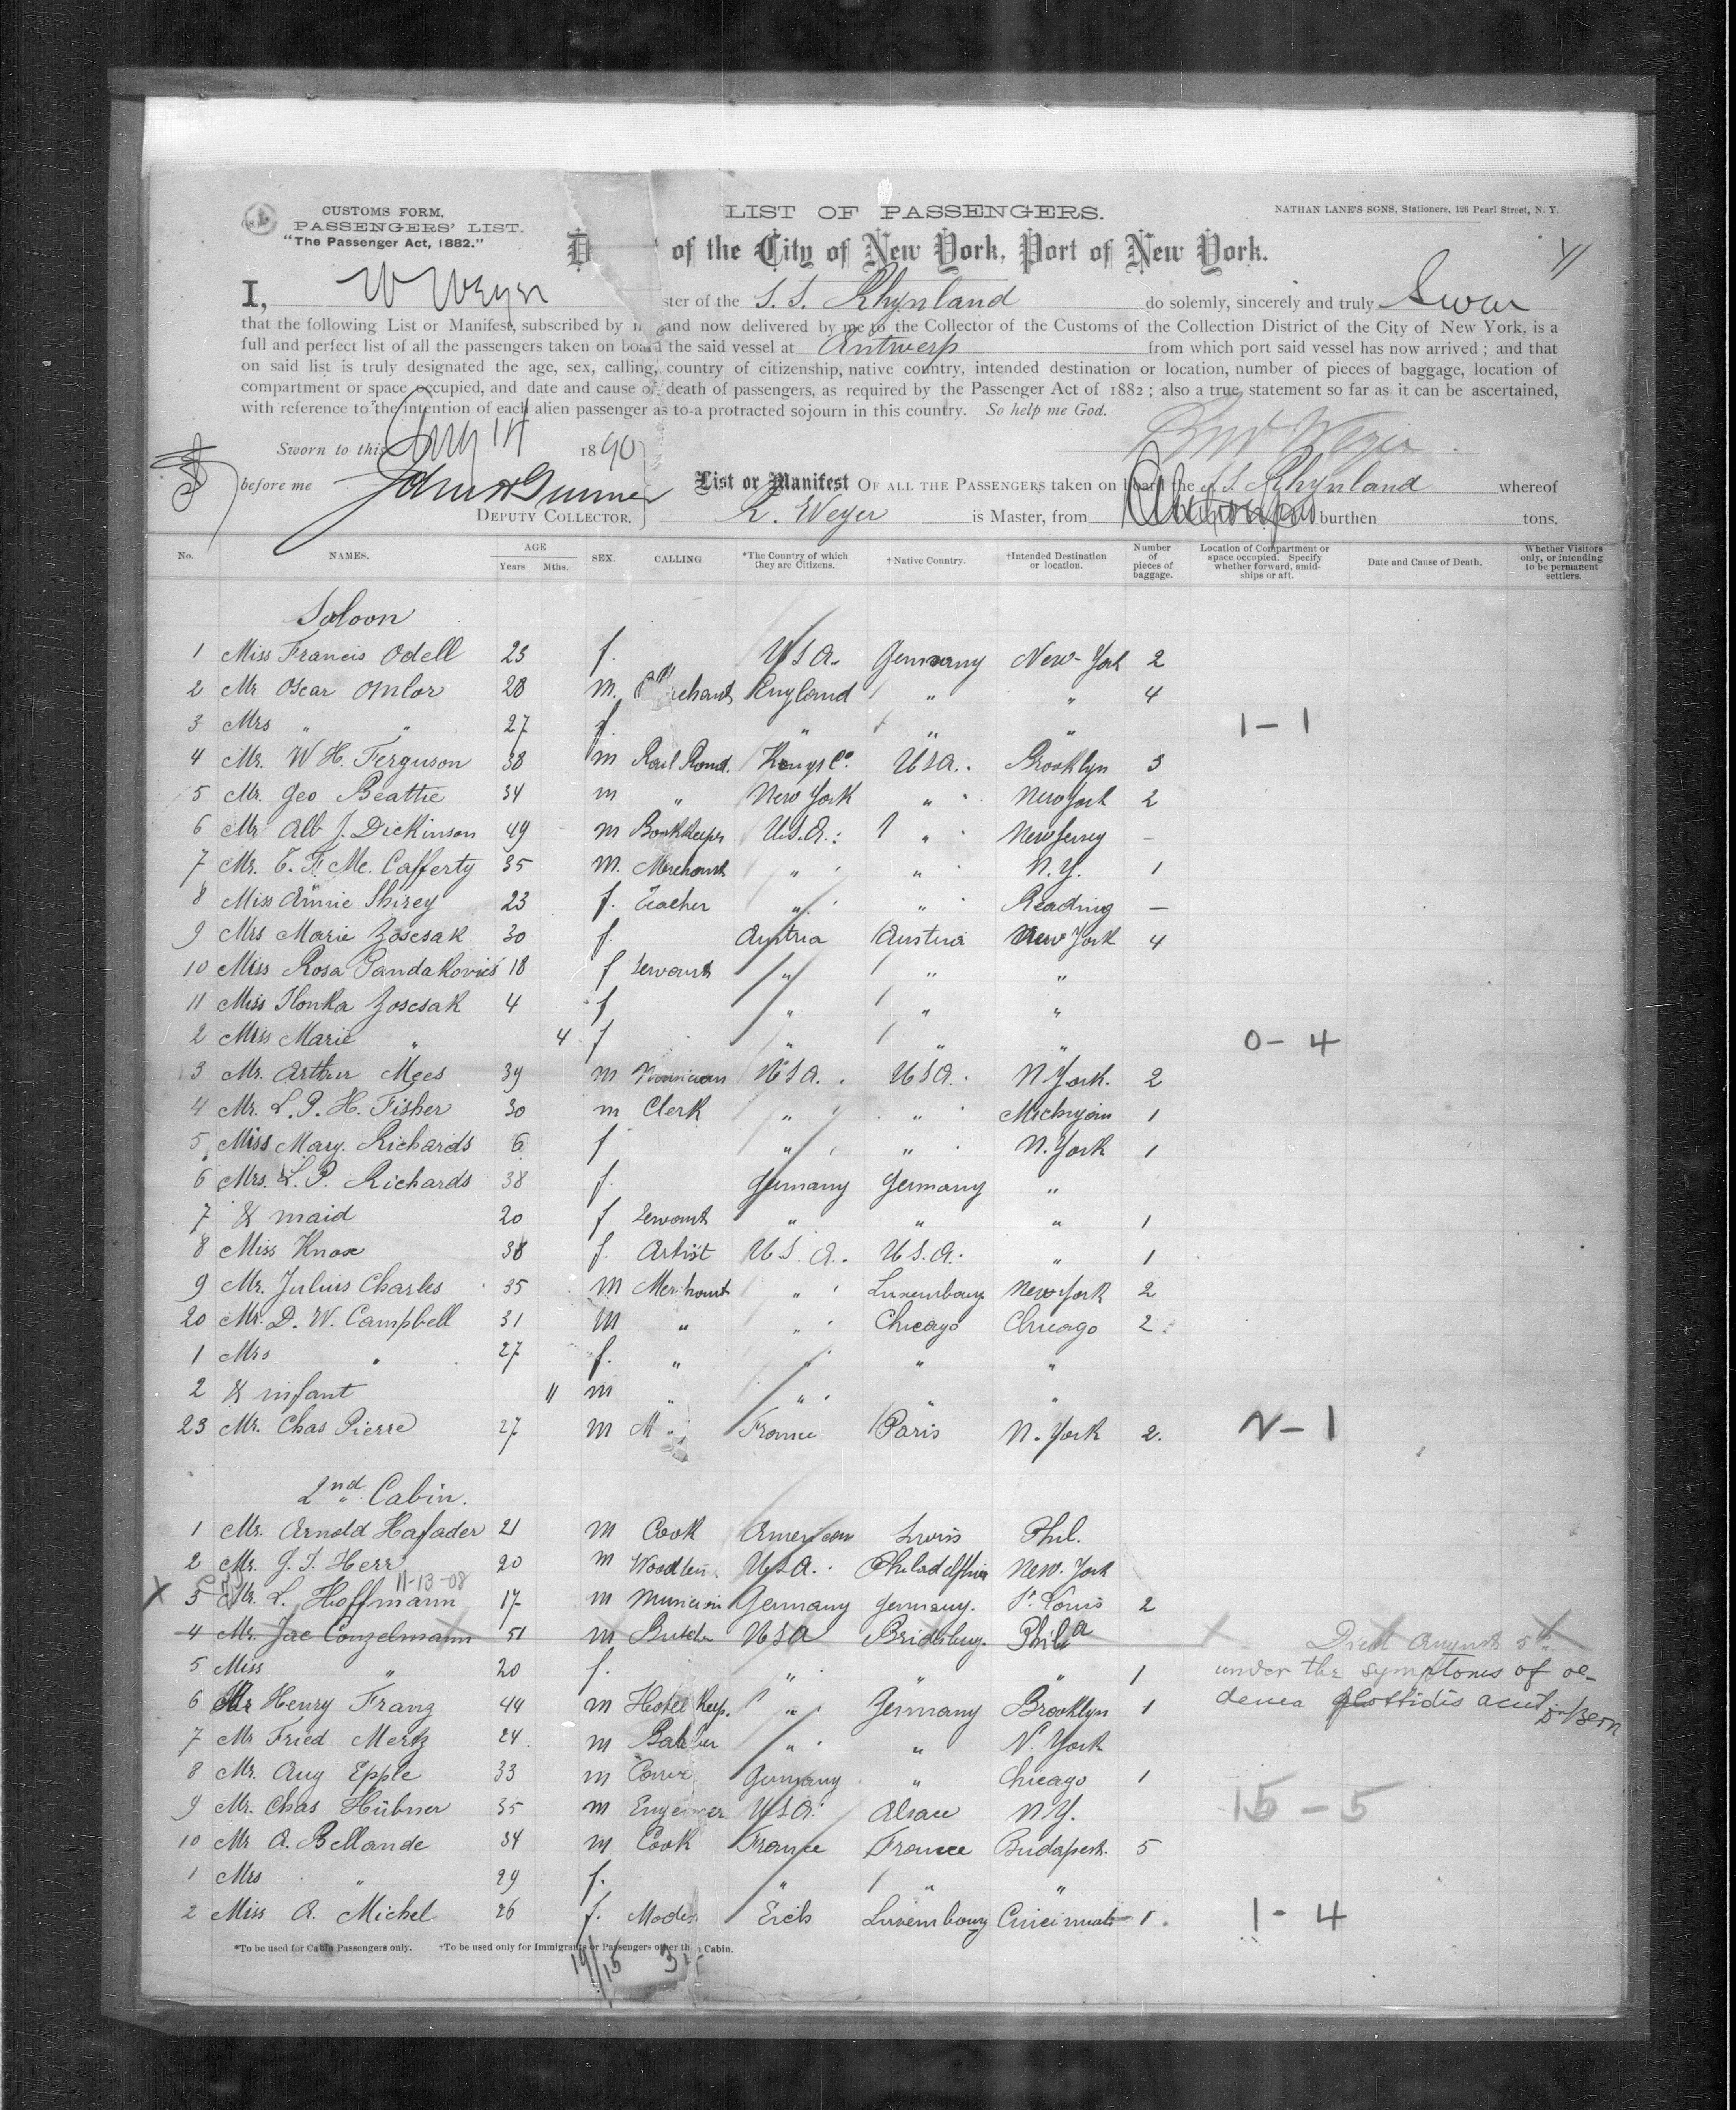 CUSTOMS FORM,
PASSENGERS' LIST.
"The Passenger Act, 1882."
LIST OF PASSENGERS.
NATHAN LANE'S SONS, Stationers, 126 Pearl Street, N. Y.
D of the City of New York, Port of New York.
I, W Weyer ster of the S. S. Rhynland do solemly, sincerely and truly Swear
that the following List or Manifest, subscribed by and now delivered by me to the Collector of the Customs of the Collection District of the City of New York, is a
full and perfect list of all the passengers taken on board the said vessel at Antwerp from which port said vessel has now arrived ; and that
on said list is truly designated the age, sex, calling, country of citizenship, native country, intended destination or location, number of pieces of baggage, location of
compartment or space occupied, and date and cause of death of passengers, as required by the Passenger Act of 1882 ; also a true statement so far as it can be ascertained,
with reference to the intention of each alien passenger as to-a protracted sojourn in this country. So help me God.
Sworn to this Aug 14 1890
Weyer
before me
DEPUTY COLLECTOR.
List or Manifest OF ALL THE PASSENGERS taken on board the S. S. Rhynland whereof
Weyer is Master, from burthen tons.
No. NAMES. AGE Years Mths. SEX. CALLING *The Country of which they are Citizens. †Native Country. †Intended Destination or location. Number of pieces of baggage. Location of Compartment or space occupied. Specify whether forward, amidships or aft. Date and Cause of Death. Whether Visitors only, or intending to be permanent settlers.
Saloon
1 Miss Francis Odell 23 f. U S A. Germany New-York 2
2 Mr Oscar 28 m. Merchant England " " 4
3 Mrs " " 27 f. " " " 1-1
4 Mr. W H. Ferguson 38 m Rail Road. Kings Co. U S A. Brooklyn 3
5 Mr. Geo Beattie 34 m " New York " New York 2
6 Mr Alb J. Dickinson 49 m Bookkeeper U.S.A. " New Jersey -
7 Mr. Mc. Cafferty 35 m. Merchant " " N.Y. 1
8 Miss Annie Shirey 23 f. Teacher " " Reading -
9 Mrs Marie Zoscsak 30 f. Austria Austria New York 4
10 Miss Rosa 18 f Servant " " "
11 Miss Ilonka Zoscsak 4 f " " "
2 Miss Marie " 4 f " " " 0-4
3 Mr. Arthur Mees 39 m Musician U S A. U S A. N. York. 2
4 Mr. L. P. H. Fisher 30 m Clerk " " Michigan 1
5 Miss Mary. Richards 6 f " " N. York 1
6 Mrs. L. P. Richards 38 f. Germany Germany "
7 & maid 20 f Servant " " " 1
8 Miss Knox 38 f. Artist U S. A. U S. A. " 1
9 Mr. Julius Charles 35 m Merchant " Luxembourg New York 2
20 Mr. D. W. Campbell 31 m " " Chicago Chicago 2
1 Mrs " 27 f. " " " "
2 & infant 11 m " " " "
23 Mr. Chas Pierre 27 m M France Paris N. York 2. N-1
2nd Cabin.
1 Mr. Arnold Hafader 21 m Cook American Swiss Phil.
2 Mr. Herr 20 m U S A. Philadelphia New-York
11-13-08
X 3 Mr. L. Hoffmann 17 m Musician Germany Germany. St. Louis 2
4 Mr. Jac Conzelmann 51 m U S A Phila Died August 5th
5 Miss " 20 f. " " " 1 under the symptoms of oe-
6 Mr Henry Franz 44 m Hotel Keep. " Germany Brooklyn 1 dema glottidis acut in Bern
7 Mr Fried Mertz 24 m " " N. York
8 Mr. Aug Epple 33 m Germany " Chicago 1
9 Mr. Chas Hübner 35 m Engineer U S A. Alsace N.Y. 15-5
10 Mr A. Bellande 34 m Cook France France Budapest. 5
1 Mrs " 29 f. " " "
2 Miss A. Michel 26 f. Luxembourg Cincinnati 1. 1-4
*To be used for Cabin Passengers only. †To be used only for Immigrants or Passengers other th Cabin.
19/15